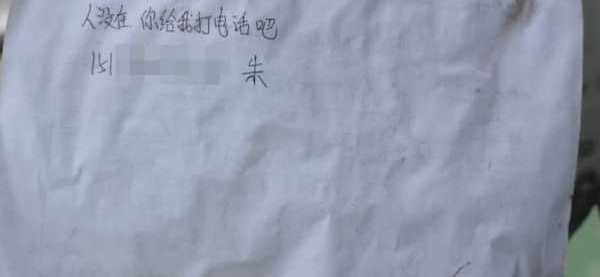 人没在 你给我打电话吧
151 朱